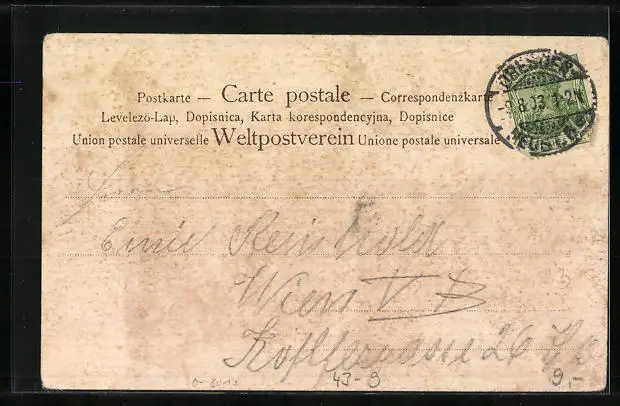 Postkarte — Carte postale — Correspondenzkarte
Levelező-Lap, Dopisnica, Karta korespondencyjna, Dopisnice
Union postale universelle Weltpostverein Unione postale universale
DRESDEN
8.03 1-2N
NEUST
Emil Reinhold
Wien V B
26
43-9
9,-